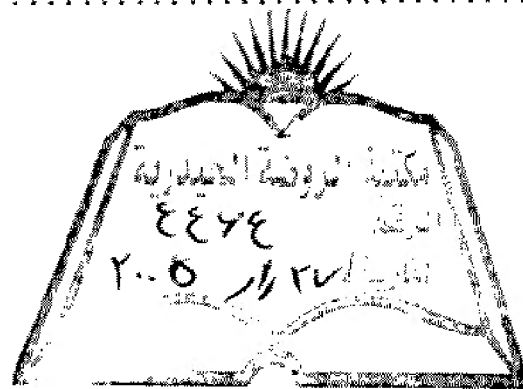 مكتبة الروضة الحيدرية
الرقم:
التاريخ: ٢٧/١/٢٠٠٥